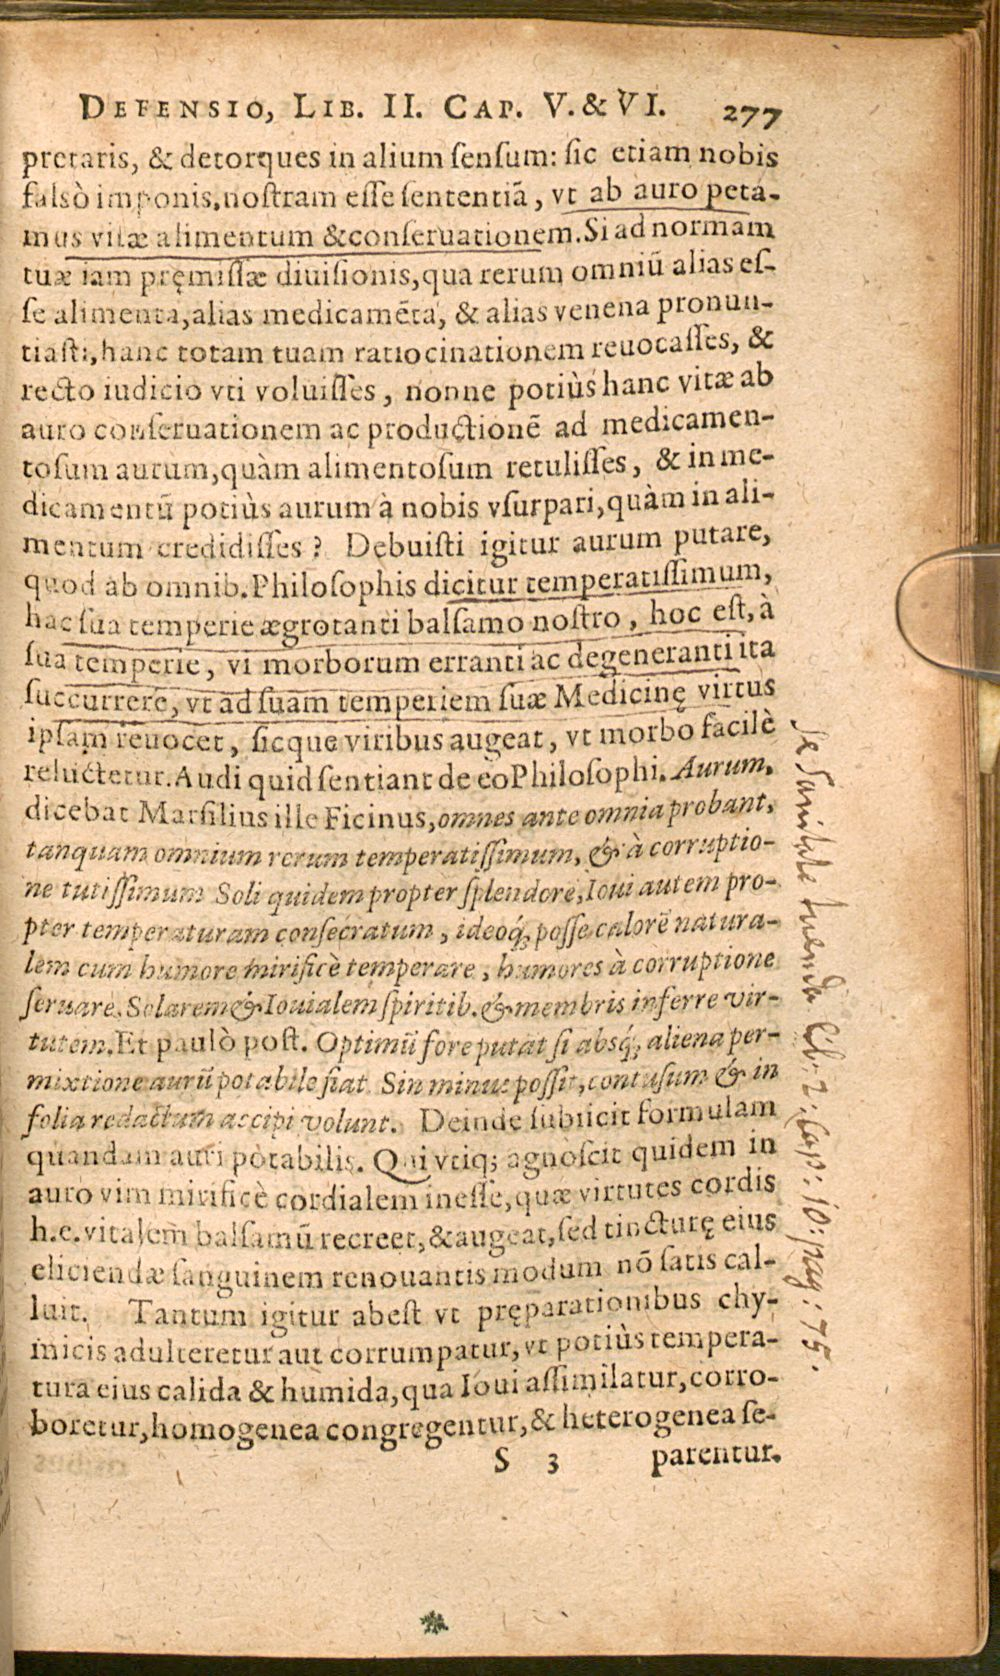 DEFENSIO, LIB. II. CAP. V. & VI. 277
pretaris, & detorques in alium sensum: sic etiam nobis
falsò imponis, nostram esse sententiã, vt ab auro peta-
mus vitæ alimentum & conseruationem. Si ad normam
tuæ iam pręmissæ diuisionis, qua rerum omniũ alias es-
se alimenta, alias medicamẽta, & alias venena pronun-
tiasti, hanc totam tuam ratiocinationem reuocasses, &
recto iudicio vti voluisses, nonne potiùs hanc vitæ ab
auro conseruationem ac productionẽ ad medicamen-
tosum aurum, quàm alimentosum retulisses, & in me-
dicamentũ potiùs aurum à nobis vsurpari, quàm in ali-
mentum credidisses? Debuisti igitur aurum putare,
quod ab omnib. Philosophis dicitur temperatissimum,
hac sua temperie ægrotanti balsamo nostro, hoc est, à
sua temperie, vi morborum erranti ac degeneranti ita
succurrere, vt ad suam temperiem suæ Medicinę virtus
ipsam reuocet, sicque viribus augeat, vt morbo facilè
reluctetur. Audi quid sentiant de eo Philosophi. Aurum,
dicebat Marsilius ille Ficinus, omnes ante omnia probant,
tanquam omnium rerum temperatissimum, & à corruptio-
ne tutissimum Soli quidem propter splendorẽ, Ioui autem pro-
pter temperaturam consecratum, ideoq́; posse calorẽ natura-
lem cum humore mirificè temperare, humores à corruptione
seruare, Solarem & Iouialem spiritib. & membris inferre vir-
tutem. Et paulò post. Optimũ fore putat si absq́; aliena per-
mixtione aurũ potabile fiat Sin minus possit, contusum & in
folia redactum accipi volunt. Deinde subiicit formulam
quandam auri potabilis. Qui vtiq; agnoscit quidem in
auro vim mirificè cordialem inesse, quæ virtutes cordis
h.e. vitalem balsamũ recreet, & augeat, sed tincturę eius
eliciendæ sanguinem renouantis modum nõ satis cal-
luit. Tantum igitur abest vt pręparationibus chy-
micis adulteretur aut corrumpatur, vt potiùs tempera-
tura eius calida & humida, qua Ioui assimilatur, corro-
boretur, homogenea congregentur, & heterogenea se-
S 3 parentur.
de Sanitate tuenda lib: 2: Cap: 10: pag: 75.